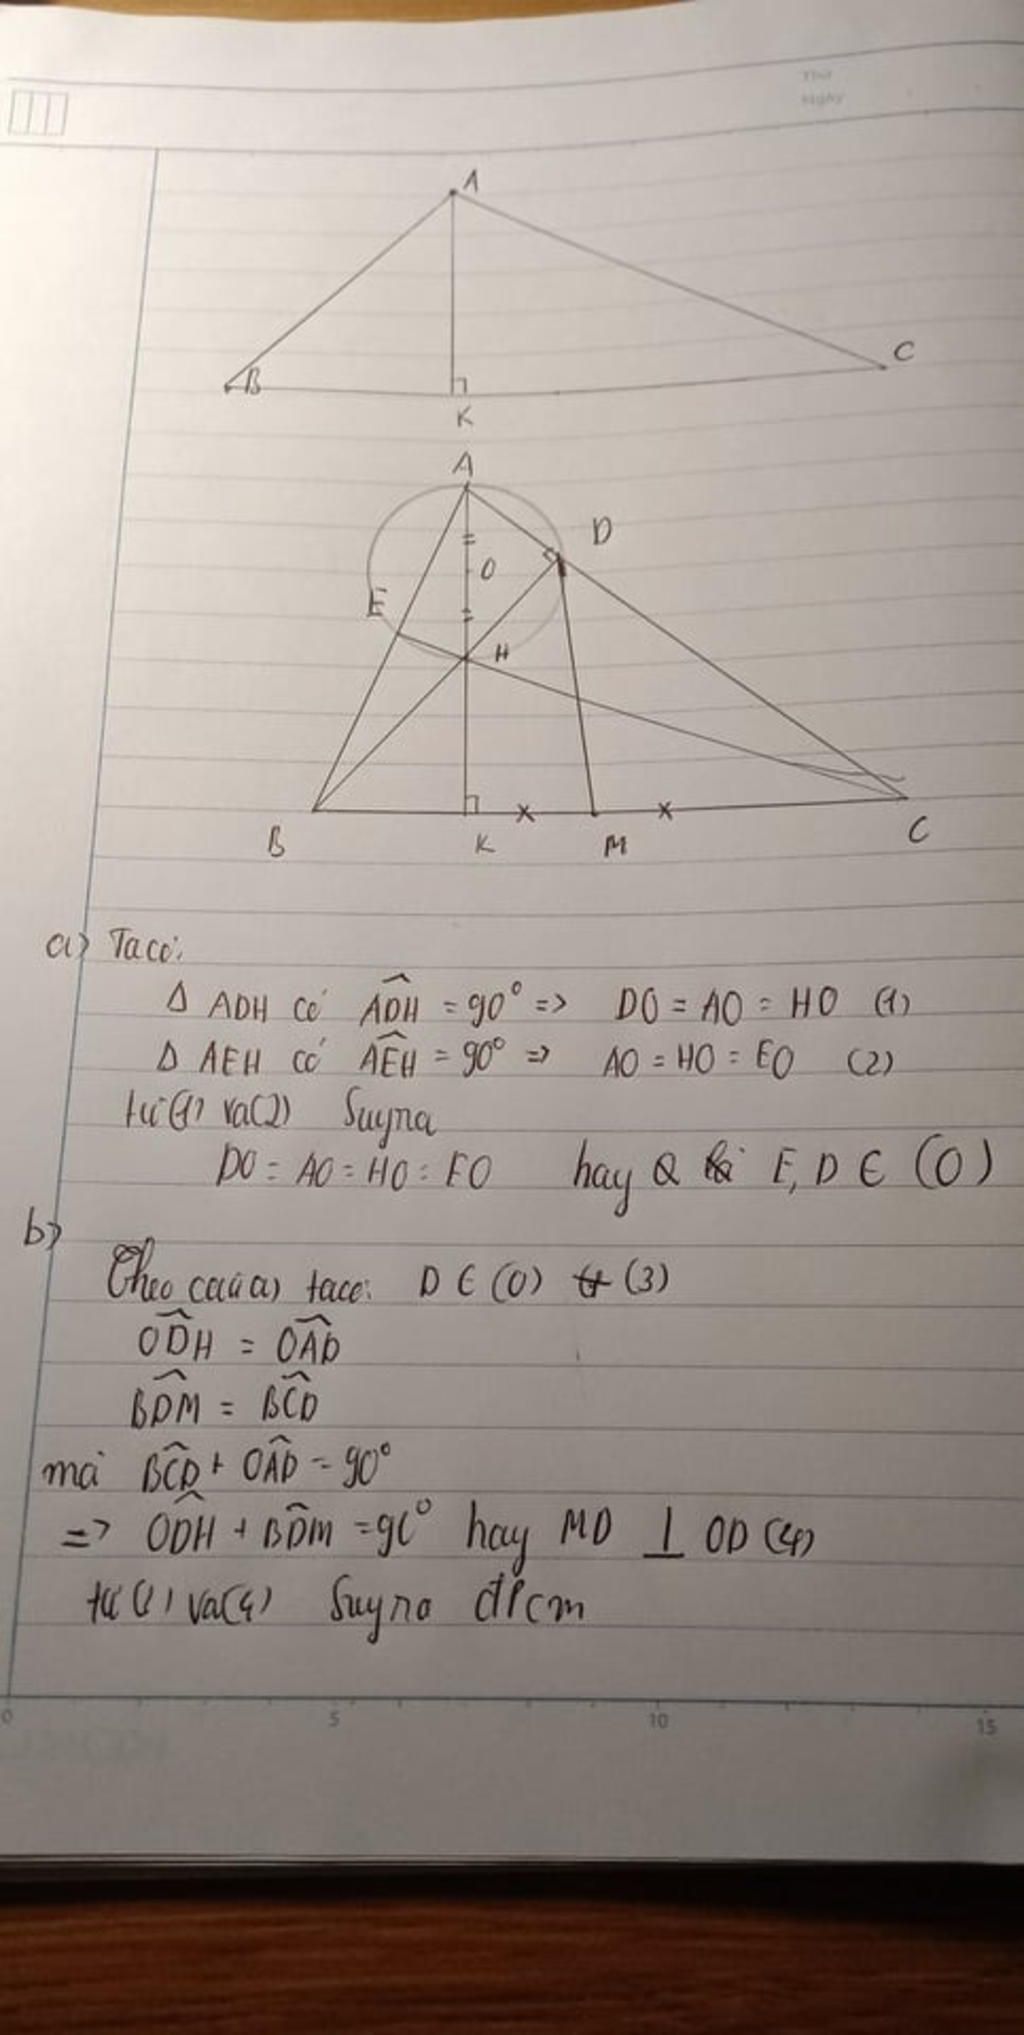 Thứ
Ngày
A
B
C
K
A
D
O
E
H
B
K
M
C
a) Ta có:
Δ ADH có \widehat{ADH} = 90° => DO = AO = HO (1)
Δ AEH có \widehat{AEH} = 90° => AO = HO = EO (2)
từ (1) và (2) Suy ra
DO = AO = HO = EO hay E, D ∈ (O)
b)
Theo câu a) ta có: D ∈ (O) (3)
\widehat{ODH} = \widehat{OAD}
\widehat{BDM} = \widehat{BCD}
mà \widehat{BCD} + \widehat{OAD} = 90°
=> \widehat{ODH} + \widehat{BDM} = 90° hay MD ⊥ OD (4)
từ (1) và (4) Suy ra đpcm
0 5 10 15